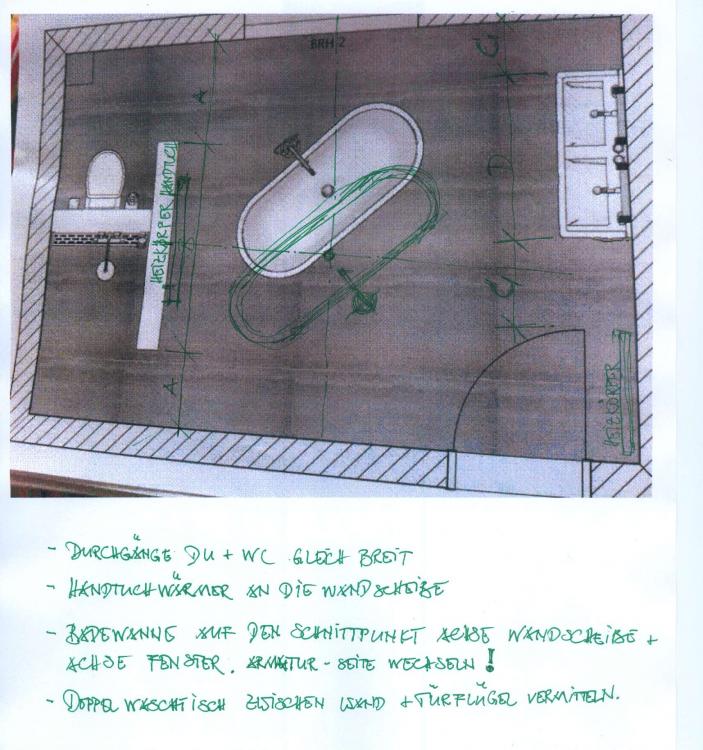 BRH 2
C
A
D
HEIZKÖRPER HANDTUCH
C
A
HEIZKÖRPER
- DURCHGÄNGE DU + WC GLEICH BREIT
- HANDTUCHWÄRMER AN DIE WANDSCHEIBE
- BADEWANNE AUF DEN SCHNITTPUNKT ACHSE WANDSCHEIBE +
ACHSE FENSTER. ARMATUR-SEITE WECHSELN!
- DOPPELWASCHTISCH ZWISCHEN WAND + TÜRFLÜGEL VERMITTELN.